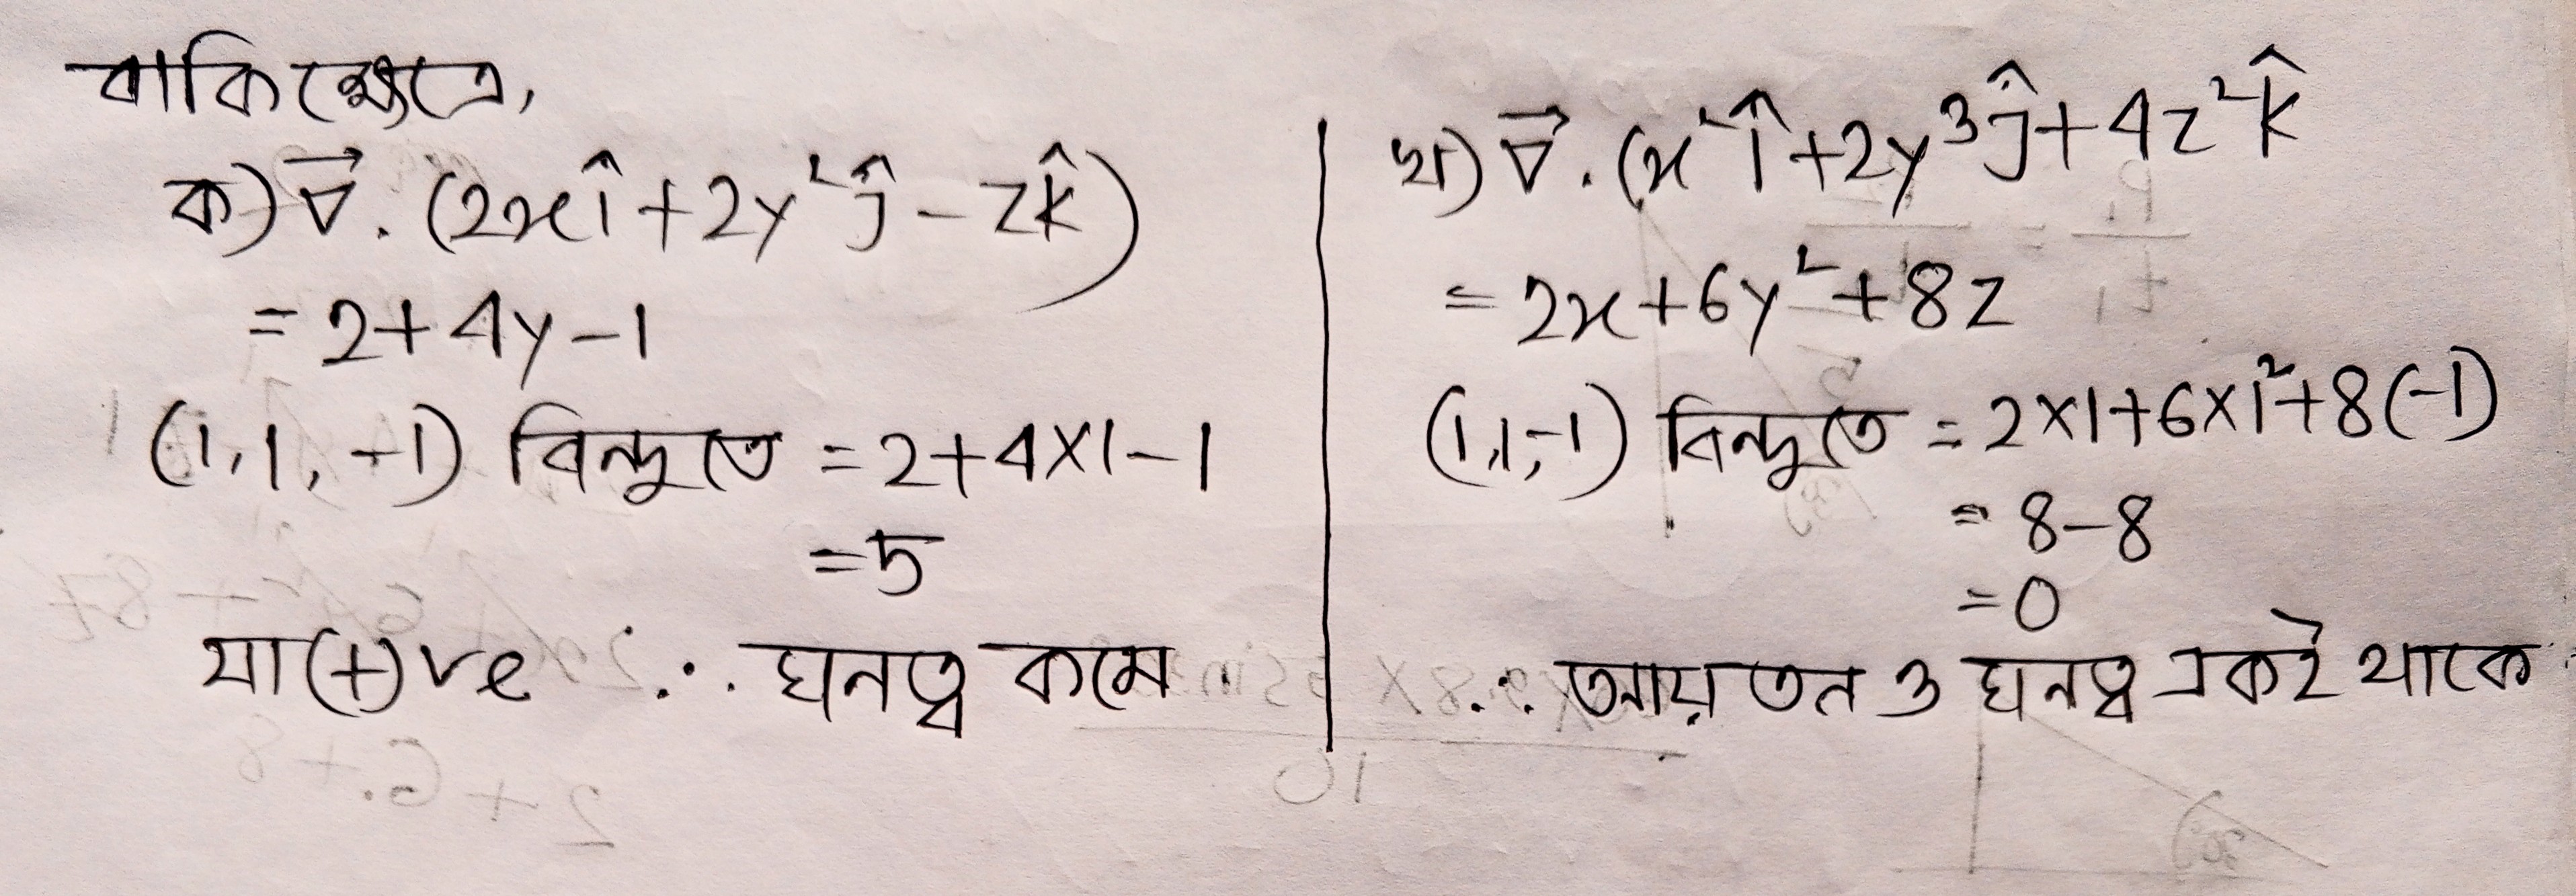 বাকি ক্ষেত্রে,
ক) ∇⃗. (2xî + 2y²ĵ – zk̂)
= 2 + 4y – 1
(1, 1, -1) বিন্দুতে = 2 + 4×1 – 1
= 5
যা (+)ve ∴ ঘনত্ব কমে
খ) ∇⃗. (x²î + 2y³ĵ + 4z²k̂
= 2x + 6y² + 8z
(1,1,-1) বিন্দুতে = 2×1 + 6×1² + 8(-1)
= 8 – 8
= 0
∴ আয়তন ও ঘনত্ব একই থাকে